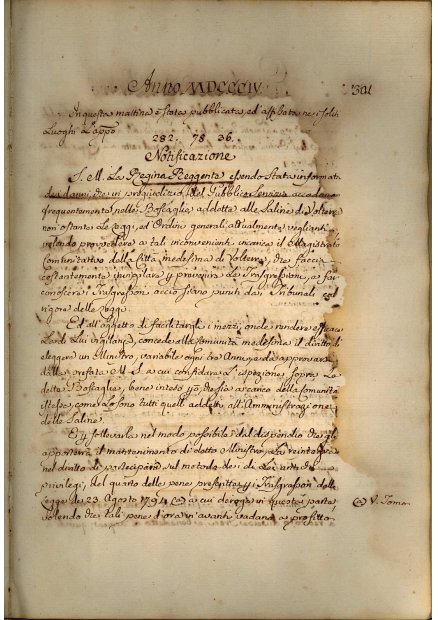 Anno MDCCCIV.
301
In questa mattina è stata pubblicata, ed affissa ne i soliti
Luoghi L'app.o
282. 78 36.
Notificazione
S. M. La Regina Reggente essendo Stata informata
dei danni, che in pregiudizio del Pubblico Servizio accadono
frequentemente nelle Boscaglie addette alle Saline di Volterra
non ostante Le Leggi, ed Ordini generali attualmente veglianti
volendo provvedere a tali inconvenienti incarica il Magistrato
Comunitativo della Città medesima di Volterra, che faccia
costantemente invigilare p prevenire Le Trasgressioni, e far
conoscere i Trasgressori acciò siano puniti dai Tribunali col
rigore delle Leggi.
Ed all'oggetto di facilitargli i mezzi, onde rendere efficace
La di Lui vigilanza, concede alla Comunità medesima il diritto di
eleggere un Ministro, variabile ogni tre Anni, e da approvarsi
dalla prefata M. S. a cui confidare L'ispezione sopra Le
dette Boscaglie, bene inteso che stia a carico della Comunità
istessa, come Lo sono tutti quelli addetti all'Amministrazione
delle Saline.
E p sollevarla nel modo possibile dal dispendio che gli
apporterà il mantenimento di detto Ministro, La reintegra
nel diritto di partecipare sul metodo dei di Lei antichi
privilegi, del quarto delle pene prescritte p i Trasgressori della
Legge de 23. Agosto 1794. (a) a cui deroga in questa parte,
volendo che tali pene d'ora in avanti vadano a profitto
(a) V. Tomo